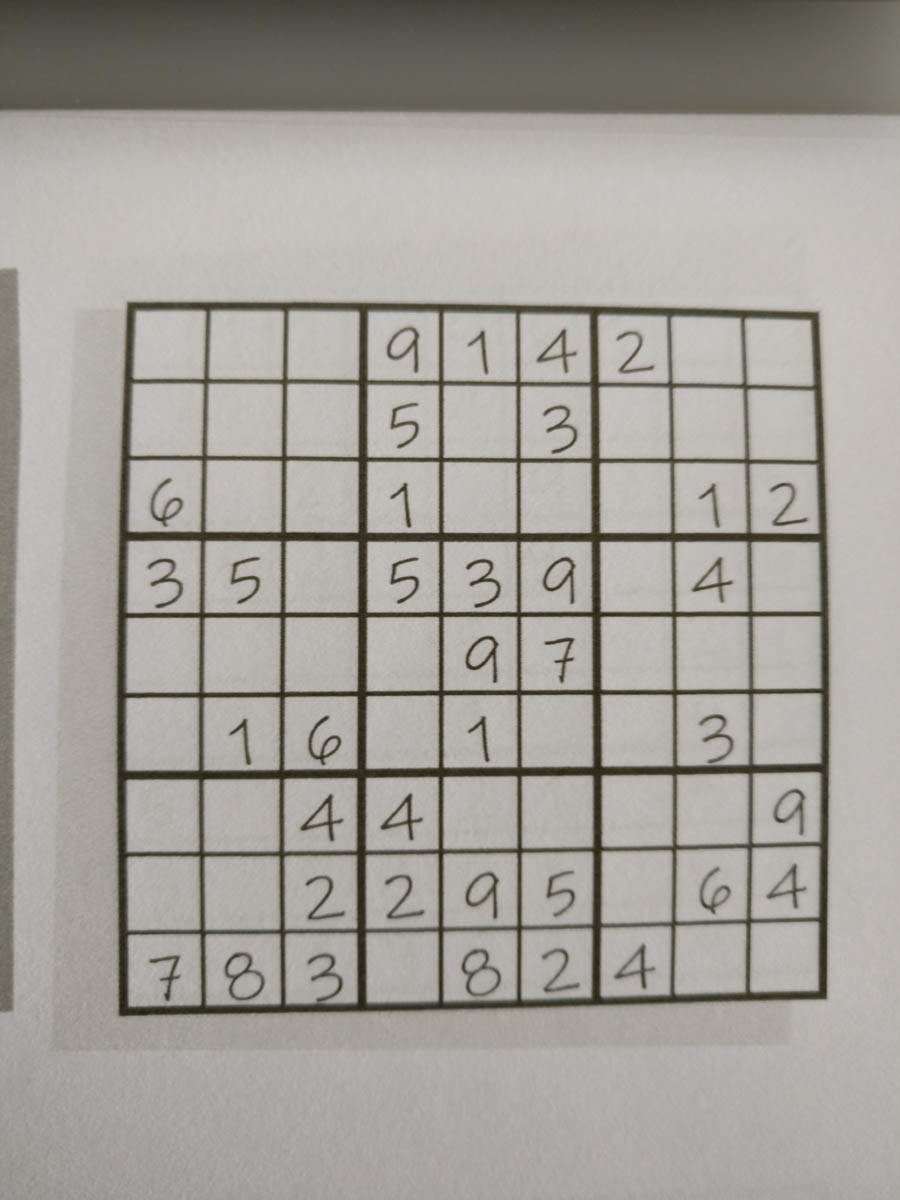 9 1 4 2
5 3
6 1 1 2
3 5 5 3 9 4
9 7
1 6 1 3
4 4 9
2 2 9 5 6 4
7 8 3 8 2 4